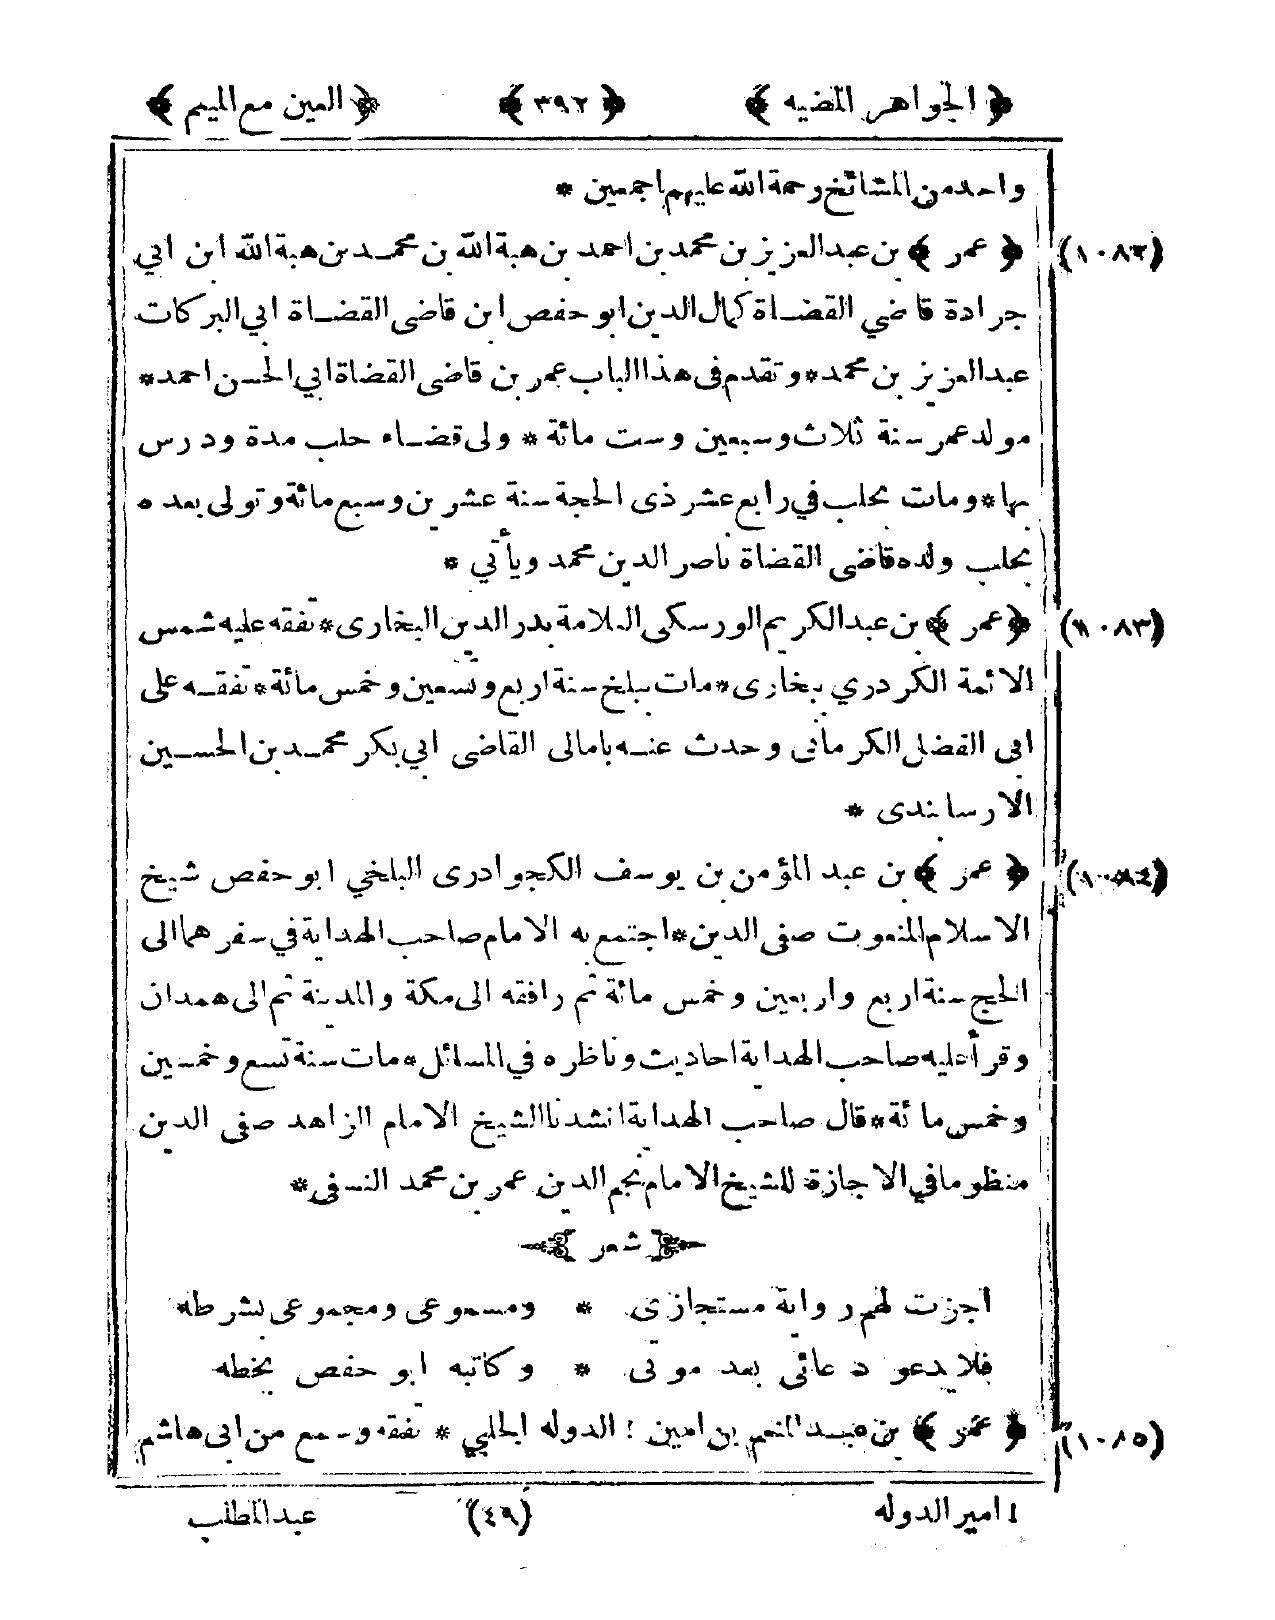 ﴿ الجواهر المضيه ﴾ ﴿ ٣٩٢ ﴾ ﴿ العين مع الميم ﴾
واحد من المشائخ رحمة الله عليهم اجمعين *
(١٠٨٢) ﴿ عمر ﴾ بن عبد العزيز بن محمد بن احمد بن هبة الله بن محمد بن هبة الله ابن ابي
جرادة قاضي القضاة كمال الدين ابو حفص ابن قاضى القضاة ابي البركات
عبد العزيز بن محمد * وتقدم فى هذا الباب عمر بن قاضى القضاة ابي الحسن احمد *
مولد عمر سنة ثلاث وسبعين وست مائة * ولى قضاء حلب مدة ودرس
بها * ومات بحلب في رابع عشر ذى الحجة سنة عشرين وسبع مائة وتولى بعده
بحلب ولده قاضى القضاة ناصر الدين محمد ويأتي *
(١٠٨٣) ﴿ عمر ﴾ بن عبد الكريم الورسكى العلامة بدر الدين البخارى * تفقه عليه شمس
الائمة الكردري ببخارى * مات ببلخ سنة اربع وتسعين وخمس مائة * تفقه على
ابى الفضل الكرمانى وحدث عنه بامالى القاضى ابي بكر محمد بن الحسين
الارسابندى *
(١٠٨٤) ﴿ عمر ﴾ بن عبد المؤمن بن يوسف الكجوادرى البلخي ابو حفص شيخ
الاسلام المنعوت صفى الدين * اجتمع به الامام صاحب الهداية في سفرهما الى
الحج سنة اربع واربعين وخمس مائة ثم رافقه الى مكة والمدينة ثم الى همدان
وقرأ عليه صاحب الهداية احاديث وناظره في المسائل * مات سنة تسع وخمسين
وخمس مائة * قال صاحب الهداية انشدنا الشيخ الامام الزاهد صفى الدين
منظوما في الاجازة للشيخ الامام نجم الدين عمر بن محمد النسفى *
شعر
اجزت لهم رواية مستجازى * ومسموعى ومجموعى بشرطه
فلا يدعو دعائي بعد موتى * وكاتبه ابو حفص بخطه
(١٠٨٥) ﴿ عمر ﴾ بن عبد المنعم بن امين ١ الدوله الحلبي * تفقه وسمع من ابى هاشم
١ امير الدوله (٤٩) عبد المطلب